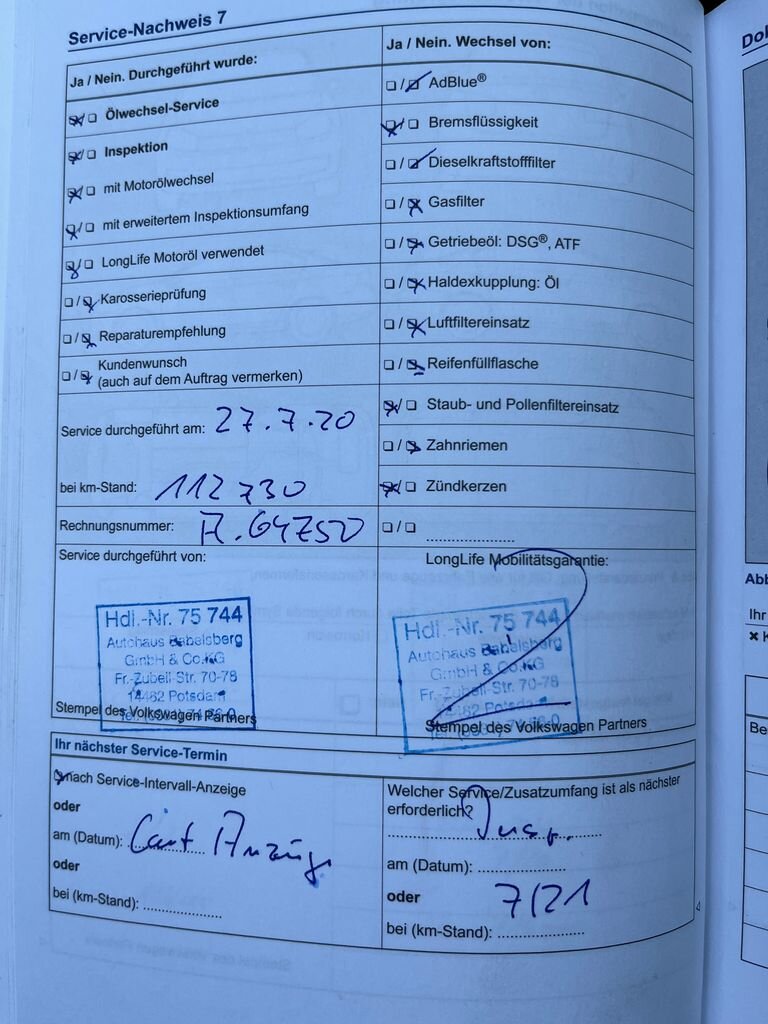 Service-Nachweis 7
Ja / Nein. Durchgeführt wurde:
Ölwechsel-Service
Inspektion
mit Motorölwechsel
mit erweitertem Inspektionsumfang
LongLife Motoröl verwendet
Karosserieprüfung
Reparaturempfehlung
Kundenwunsch
(auch auf dem Auftrag vermerken)
Service durchgeführt am: 27.7.20
bei km-Stand: 112730
Rechnungsnummer: A.64750
Service durchgeführt von:
Hdl.-Nr. 75 744
Autohaus Babelsberg
GmbH & Co.KG
Fr.-Zubeil-Str. 70-78
14482 Potsdam
Stempel des Volkswagen Partners
Ja / Nein. Wechsel von:
AdBlue®
Bremsflüssigkeit
Dieselkraftstofffilter
Gasfilter
Getriebeöl: DSG®, ATF
Haldexkupplung: Öl
Luftfiltereinsatz
Reifenfüllflasche
Staub- und Pollenfiltereinsatz
Zahnriemen
Zündkerzen
LongLife Mobilitätsgarantie:
Hdl.-Nr. 75 744
Autohaus Babelsberg
GmbH & Co.KG
Fr.-Zubeil-Str. 70-78
14482 Potsdam
Stempel des Volkswagen Partners
Ihr nächster Service-Termin
nach Service-Intervall-Anzeige
oder
am (Datum): Laut Anzeige
oder
bei (km-Stand):
Welcher Service/Zusatzumfang ist als nächster
erforderlich?
Insp.
am (Datum):
oder 7/21
bei (km-Stand):
4
Abb
Ihr
Be